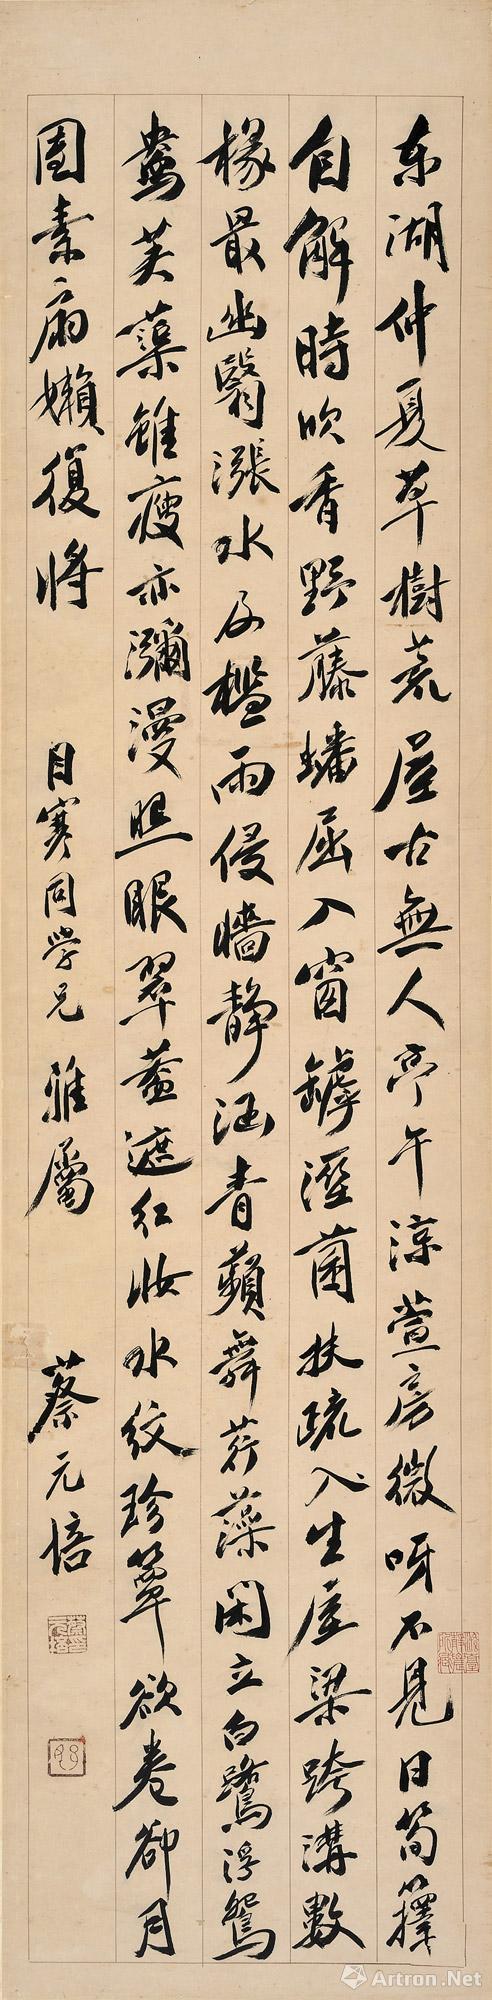 东湖仲夏草樹荒屋古無人亭午涼萱房微呀不見日筍籜
自解時吹香野藤蟠屈入窗罅溼菌扶疏生屋梁跨溝數
椽最幽翳漲水及檻雨侵牆靜涵青蘋舞荇藻閑立白鷺浮鴛
鴦芙蕖雖瘦亦瀰漫照眼翠蓋遮紅妝水紋珍簟欲卷卻月
團素扇嬾復將
目寒同學兄 雅屬
蔡元培
Artron.Net